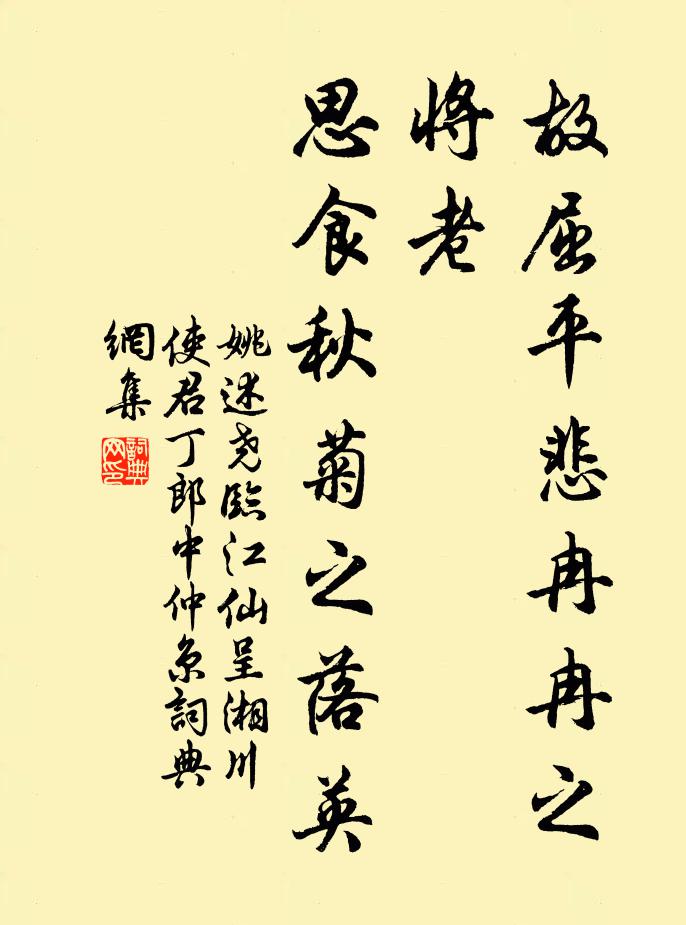 故屈平悲冉冉之
將老
思食秋菊之落英
姚述尧臨江仙呈湘川
使君丁郎中仲京詞典
網集
詞典
网印